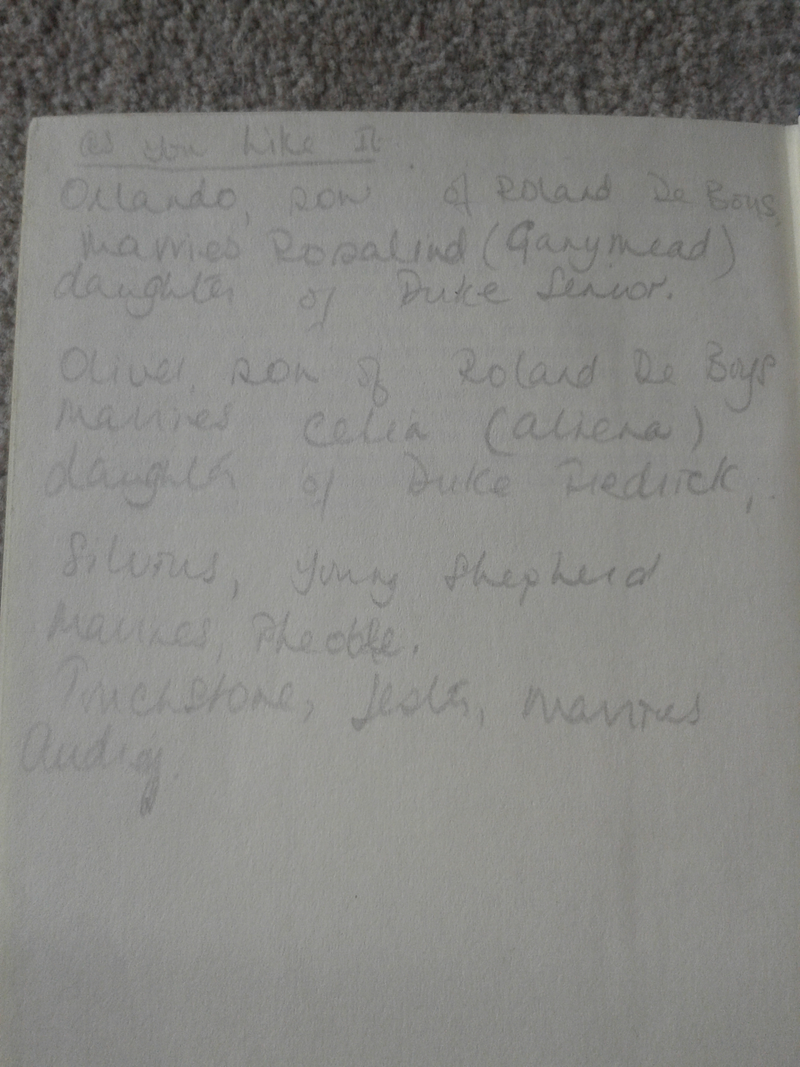 as you Like It
Orlando, son of Roland De Boys,
Marries Rosalind (Ganymead)
daughter of Duke Senior.
Oliver, son of Roland De Boys
Marries Celia (aliena)
daughter of Duke Fredrick,.
Silvius, young Shepherd
Marries, Pheobe.
Touchstone, Jester, Marries
Audrey.